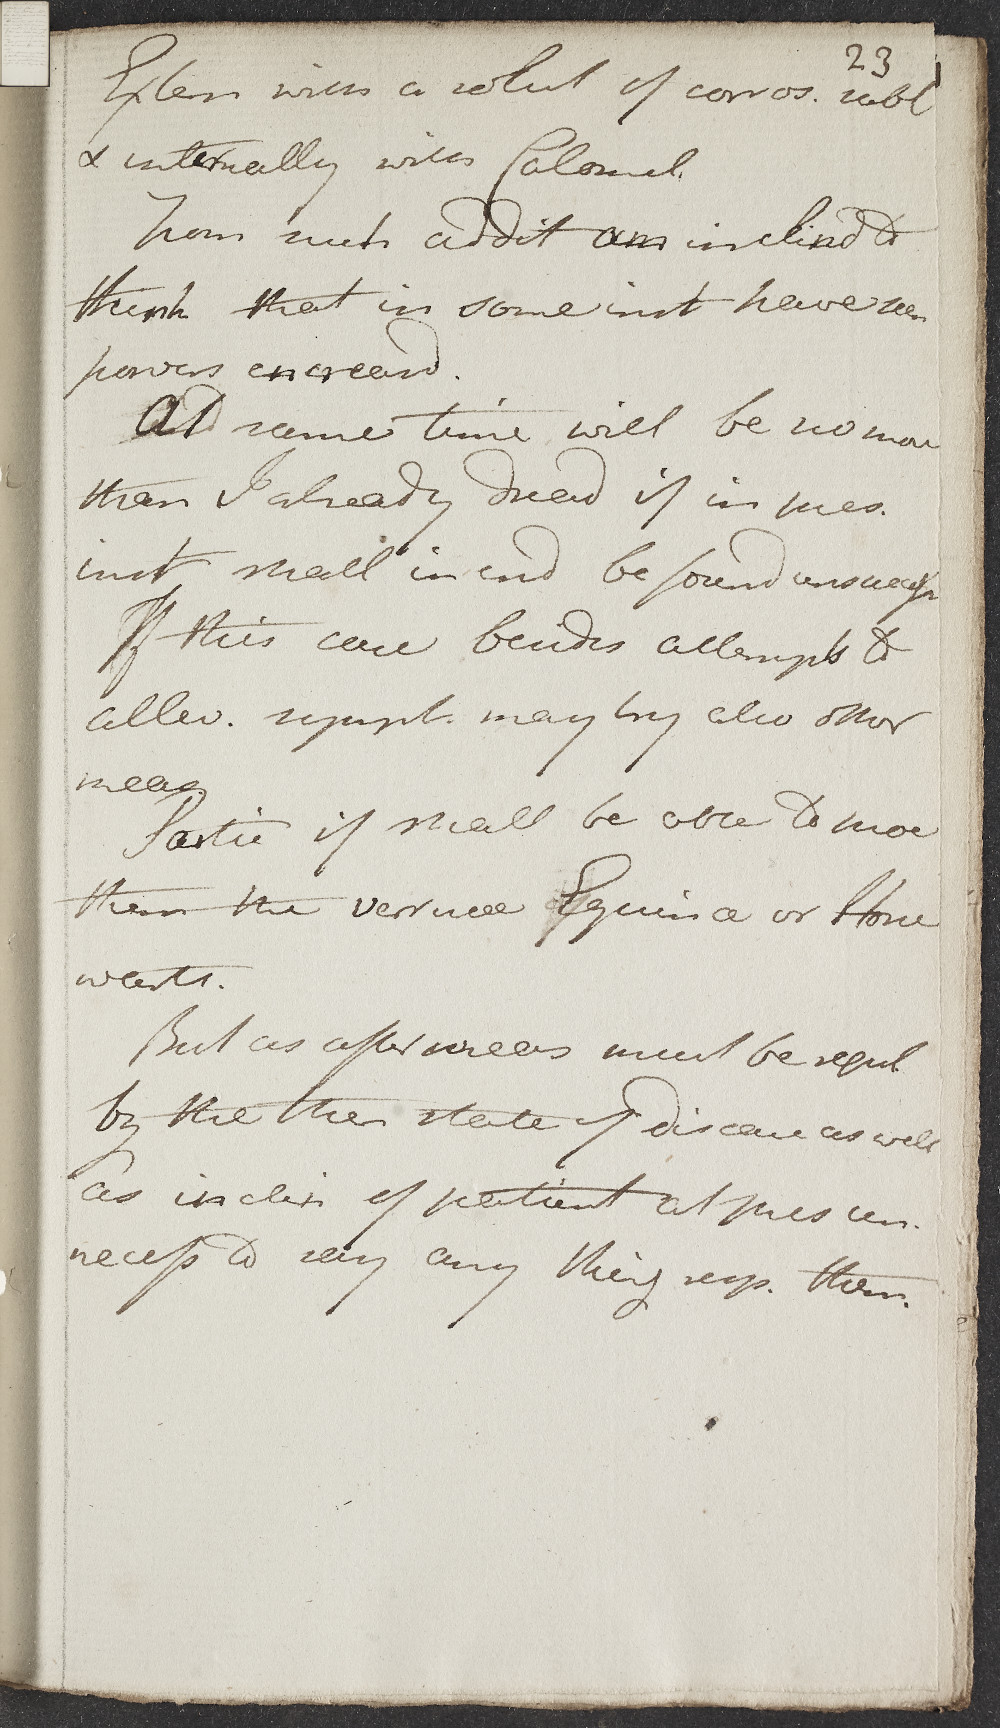 23
Extern with a solut of corros. subl
& internally with Calomel.
From such addit am inclind to
think that in some inst have seen
powers encreasd.
At same time will be no more
than I already dread if in pres.
inst shall in end be found unsuccessf
If this case besides attempts to
allev. sympt. may try also other
meas.
Partic if shall be able to procu
them the verrucæ Equinæ or Horse
warts.
But as after meas must be regul
by the then state of disease as well
as inclin of patient at pres un.
necess to say any thing resp. them.